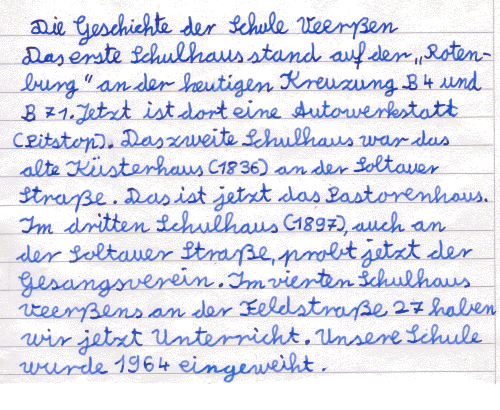 Die Geschichte der Schule Veerßen
Das erste Schulhaus stand auf der „Roten-
burg“ an der heutigen Kreuzung B 4 und
B 71. Jetzt ist dort eine Autowerkstatt
(Pitstop). Das zweite Schulhaus war das
alte Küsterhaus (1836) an der Soltauer
Straße. Das ist jetzt das Pastorenhaus.
Im dritten Schulhaus (1897), auch an
der Soltauer Straße, probt jetzt der
Gesangsverein. Im vierten Schulhaus
Veerßens an der Feldstraße 27 haben
wir jetzt Unterricht. Unsere Schule
wurde 1964 eingeweiht.